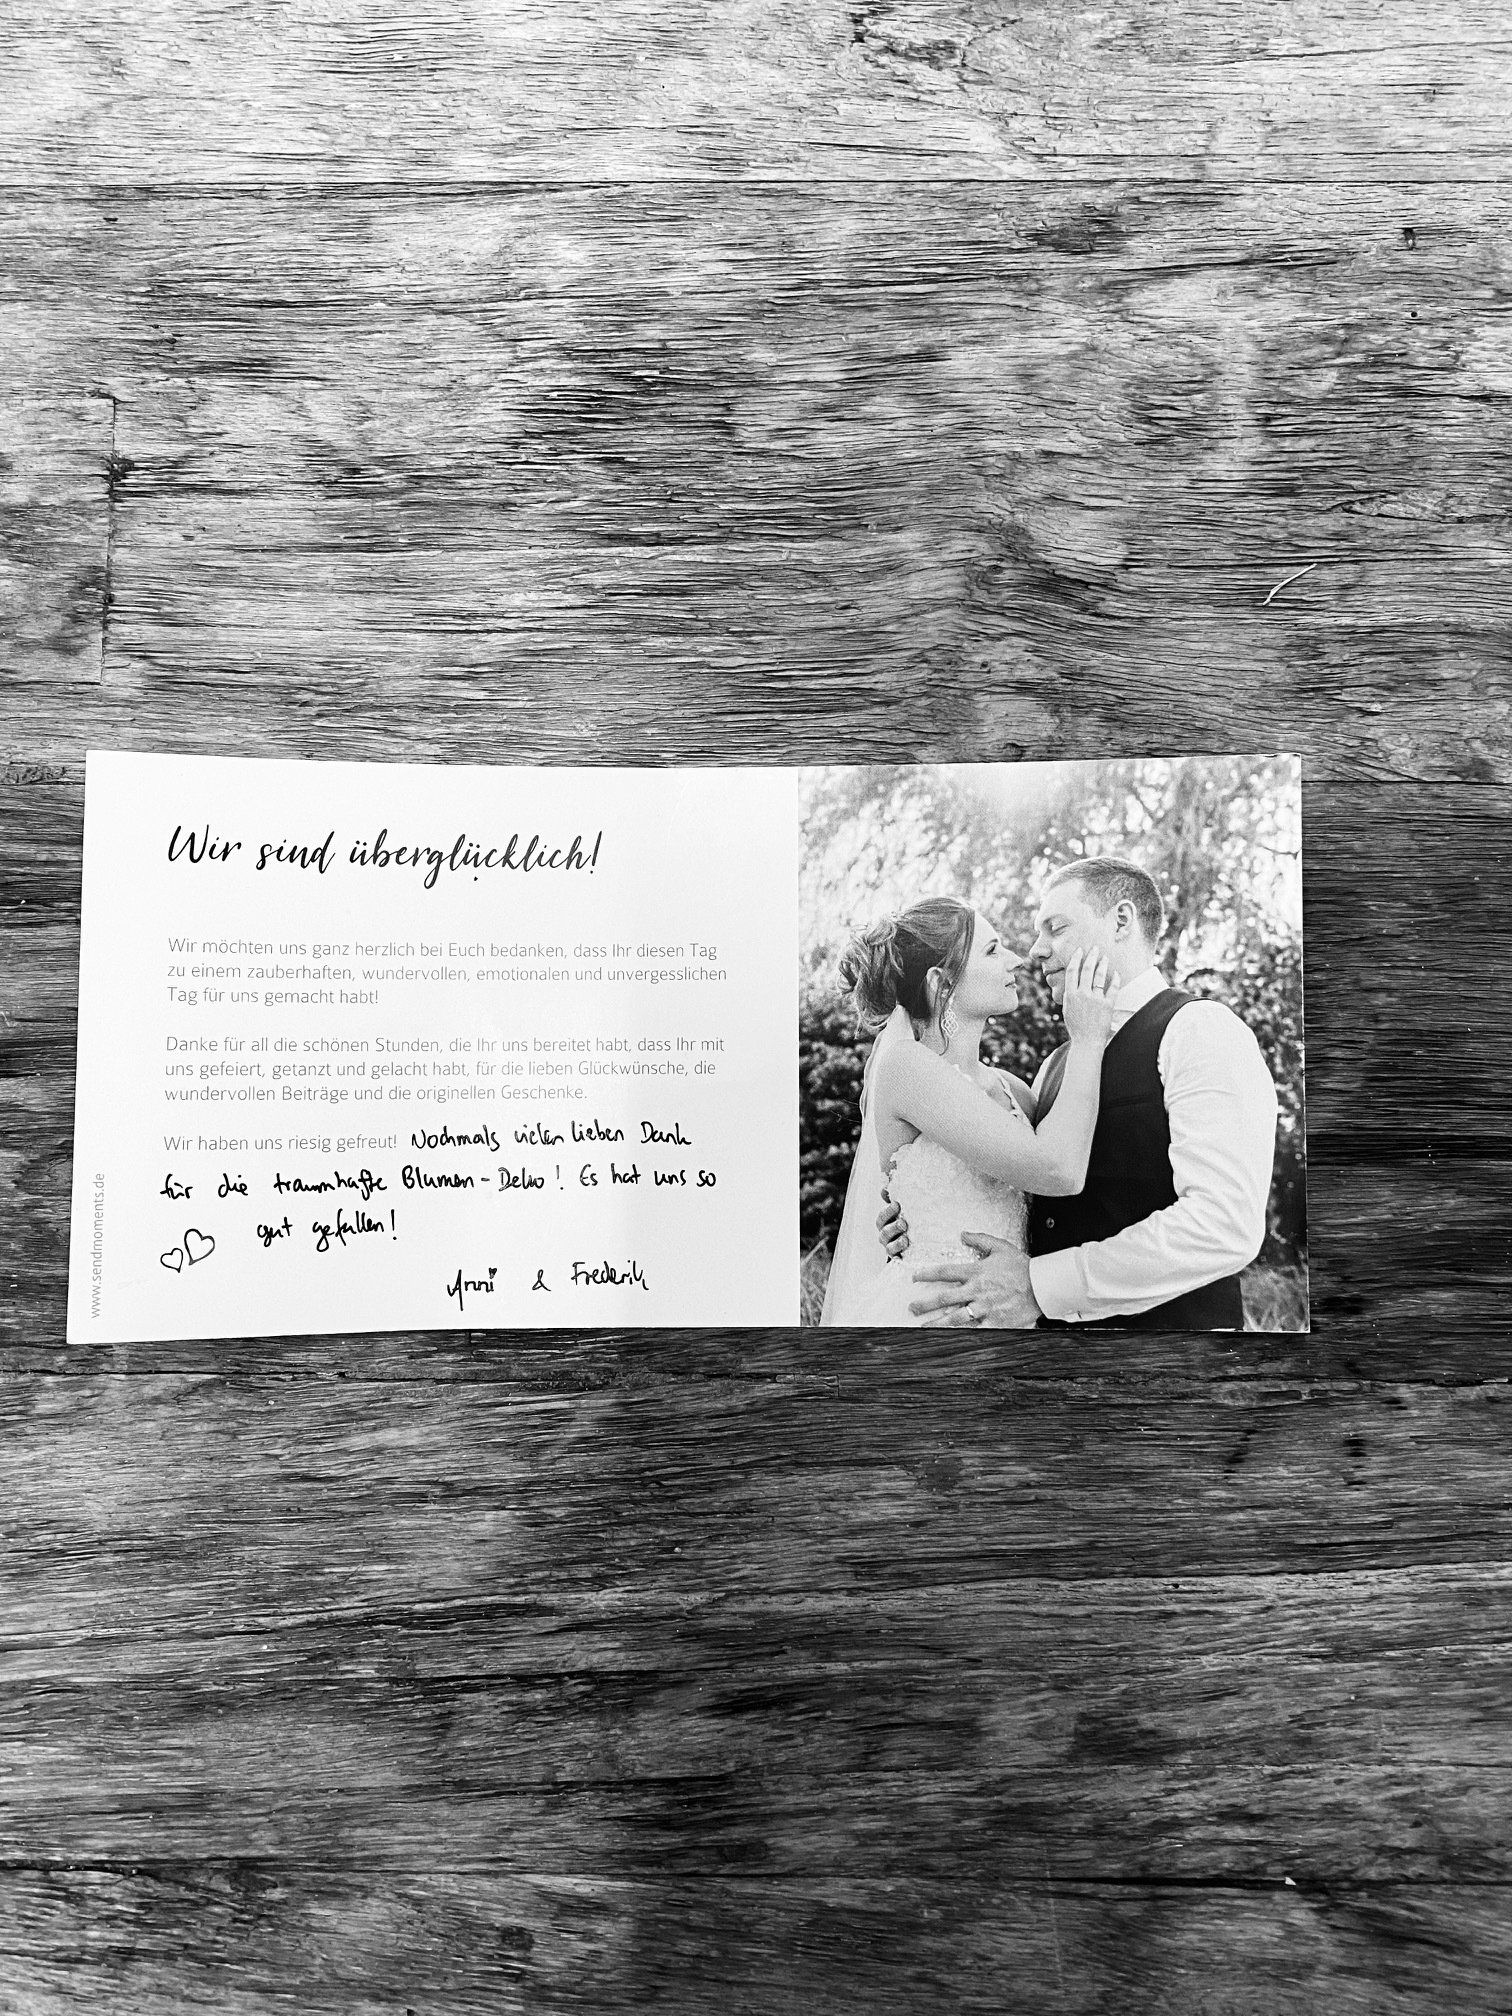 Wir sind überglücklich!
Wir möchten uns ganz herzlich bei Euch bedanken, dass Ihr diesen Tag
zu einem zauberhaften, wundervollen, emotionalen und unvergesslichen
Tag für uns gemacht habt!
Danke für all die schönen Stunden, die Ihr uns bereitet habt, dass Ihr mit
uns gefeiert, getanzt und gelacht habt, für die lieben Glückwünsche, die
wundervollen Beiträge und die originellen Geschenke.
Wir haben uns riesig gefreut! Nochmals vielen lieben Dank
für die traumhafte Blumen-Deko! Es hat uns so
gut gefallen!
Anni & Frederik
www.sendmoments.de